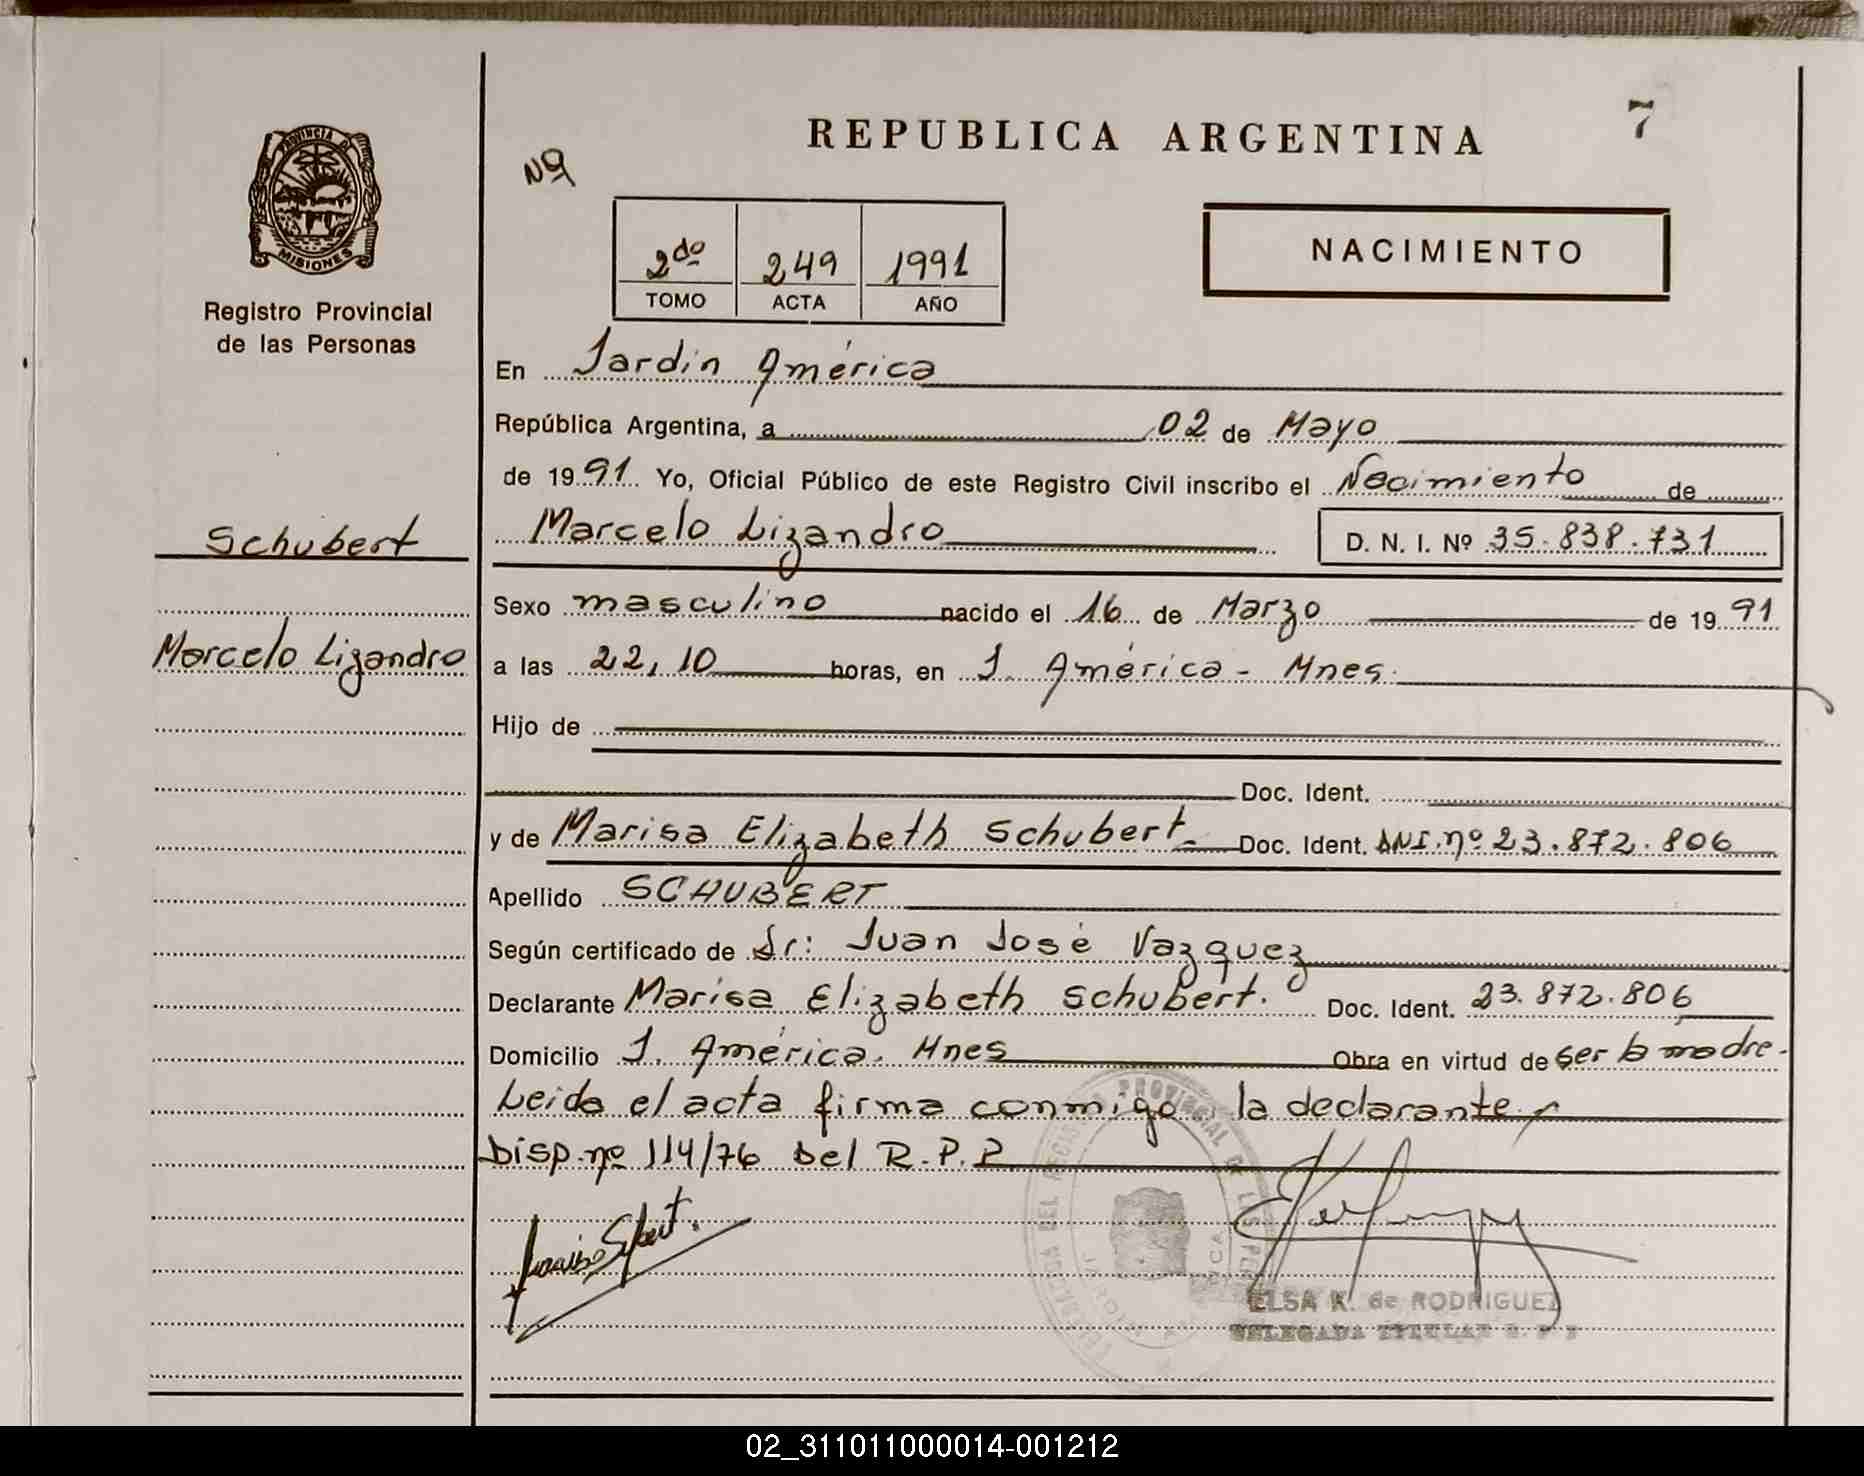 REPUBLICA ARGENTINA
7
Nº
PROVINCIA DE
MISIONES
Registro Provincial
de las Personas
2do 249 1991
TOMO ACTA AÑO
NACIMIENTO
En Jardin América
República Argentina, a 02 de Mayo
de 1991 Yo, Oficial Público de este Registro Civil inscribo el Nacimiento de
Schubert
Marcelo Lizandro
D. N. I. Nº 35.838.731
Sexo masculino nacido el 16 de Marzo de 1991
Marcelo Lizandro
a las 22,10 horas, en J. América - Mnes.
Hijo de
Doc. Ident.
y de Marisa Elizabeth Schubert.- Doc. Ident. DNI.nº 23.872.806
Apellido SCHUBERT
Según certificado de Dr: Juan José Vazquez
Declarante Marisa Elizabeth Schubert. Doc. Ident. 23.872.806
Domicilio J. América. Mnes Obra en virtud de ser la madre.
Leida el acta firma conmigo la declarante.
Disp.nº 114/76 Del R.P.P
ELSA K. de RODRIGUEZ
DELEGADA TITULAR
02_311011000014-001212